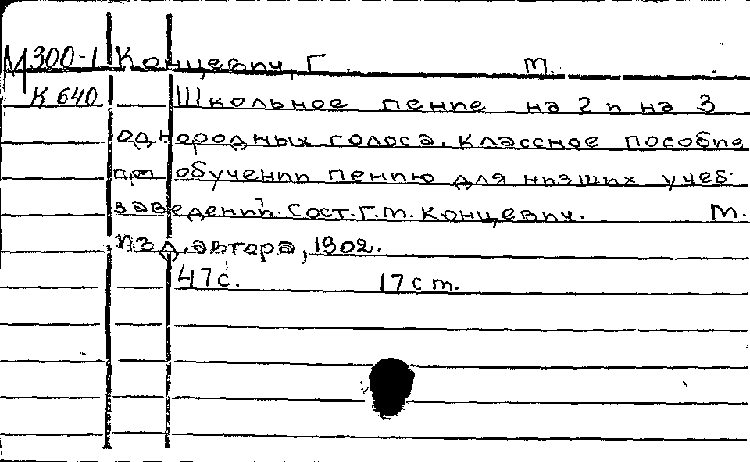 М300-1 Концевич, Г. М.
К 640 Школьное пение на 2 и на 3
однородных голоса. Классное пособие
при обучении пению для низших учеб.
заведений. Сост. Г.М. Концевич. М.
изд. автора, 1902.
47с. 17см.